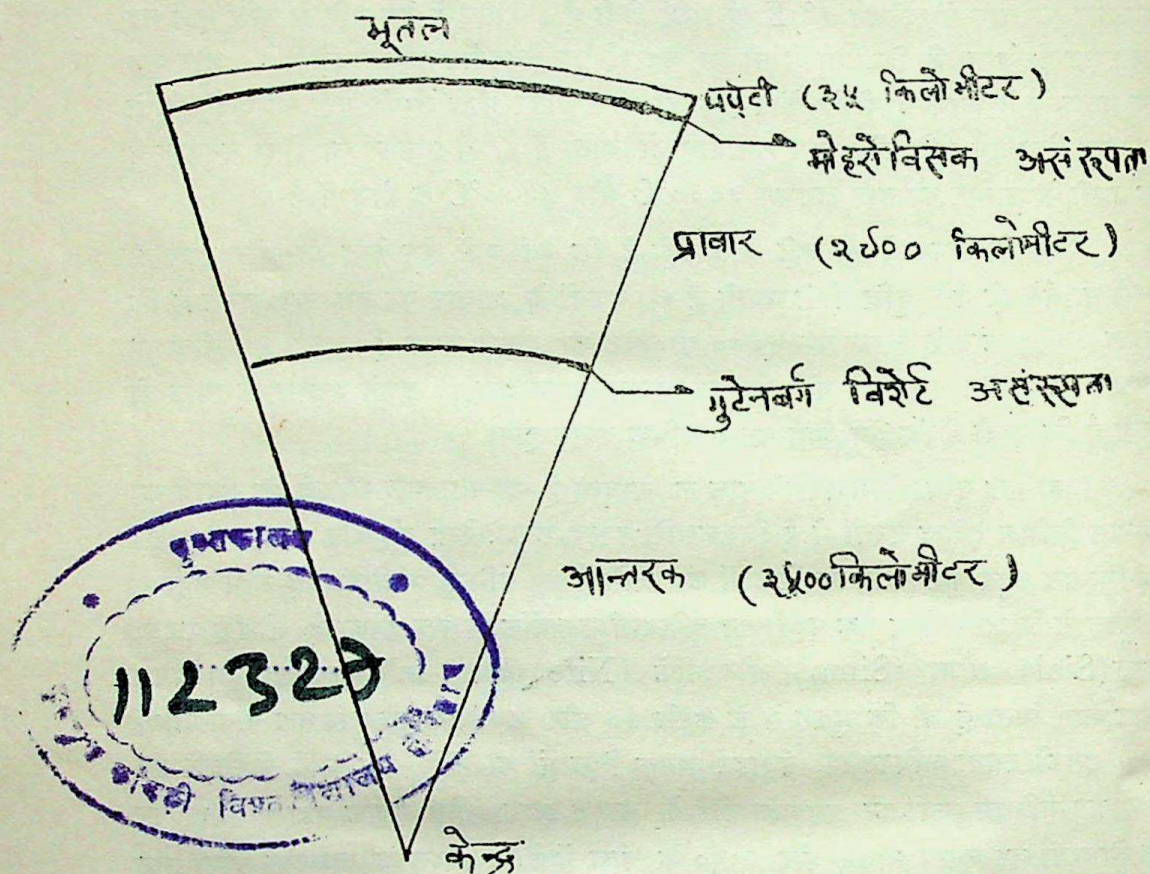 भूतल
पर्पटी (३५ किलोमीटर)
मोहरोविसक असंरूपता
प्रावार (२९०० किलोमीटर)
गुटेनबर्ग विशेर्ट असंरूपता
आन्तरक (३५०० किलोमीटर)
पुस्तकालय
112327
कांगड़ी विश्वविद्यालय
केन्द्र